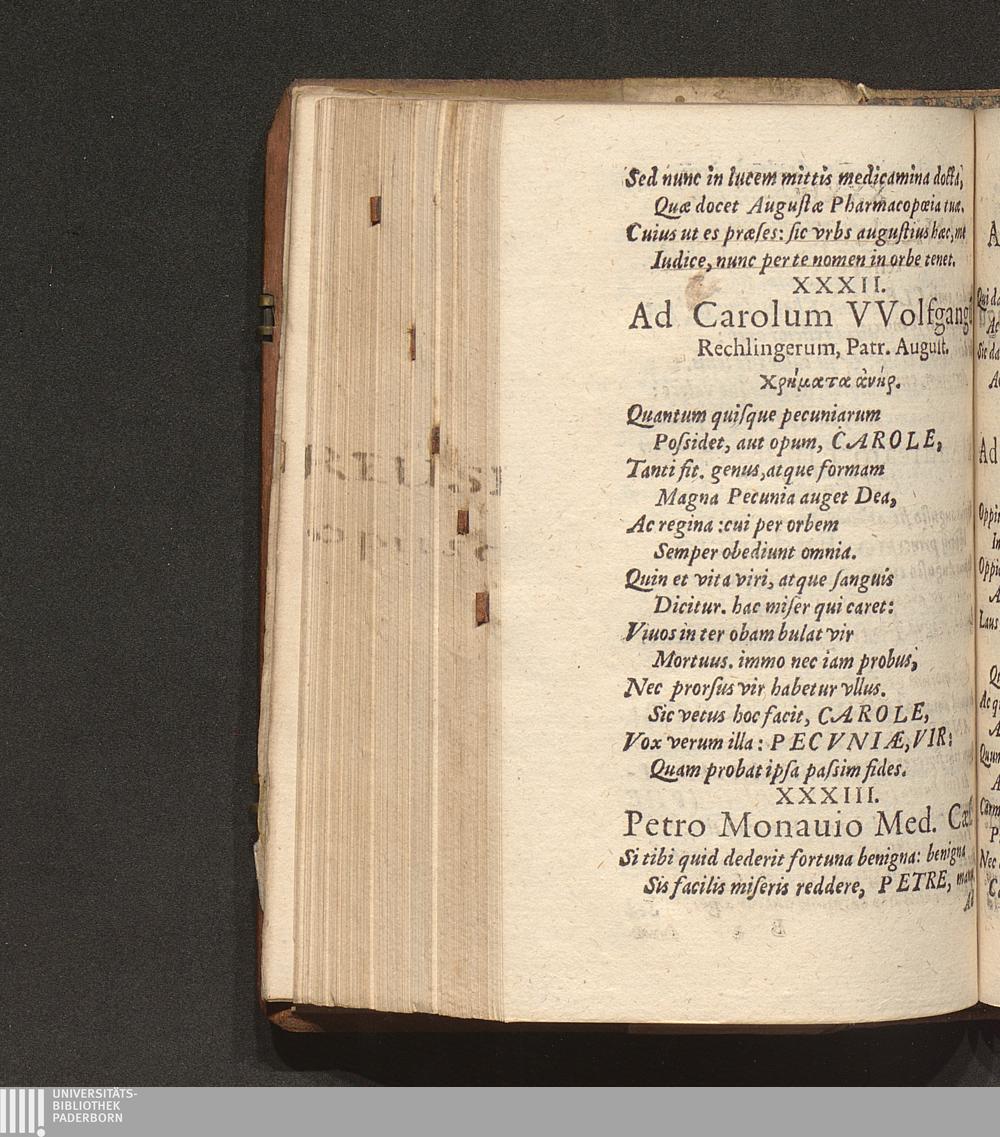 Sed nunc in lucem mittis medicamina docta,
Quæ docet Augustæ Pharmacopœia tua.
Cuius ut es præses: sic vrbs augustius hæc, me
Iudice, nunc per te nomen in orbe tenet.
XXXII.
Ad Carolum VVolfgang
Rechlingerum, Patr. August.
Χρήματα ἀνήρ.
Quantum quisque pecuniarum
Possidet, aut opum, CAROLE,
Tanti fit. genus, atque formam
Magna Pecunia auget Dea,
Ac regina: cui per orbem
Semper obediunt omnia.
Quin et vita viri, atque sanguis
Dicitur. hac miser qui caret:
Viuos inter obambulat vir
Mortuus. immo nec iam probus,
Nec prorsus vir habetur vllus.
Sic vetus hoc facit, CAROLE,
Vox verum illa: PECVNIÆ, VIR:
Quam probat ipsa passim fides.
XXXIII.
Petro Monauio Med.
Si tibi quid dederit fortuna benigna: benigna
Sis facilis miseris reddere, PETRE,
Ad
UNIVERSITÄTS-
BIBLIOTHEK
PADERBORN